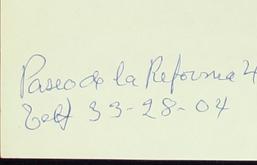 Paseo de la Reforma 4
Telf 33-28-04